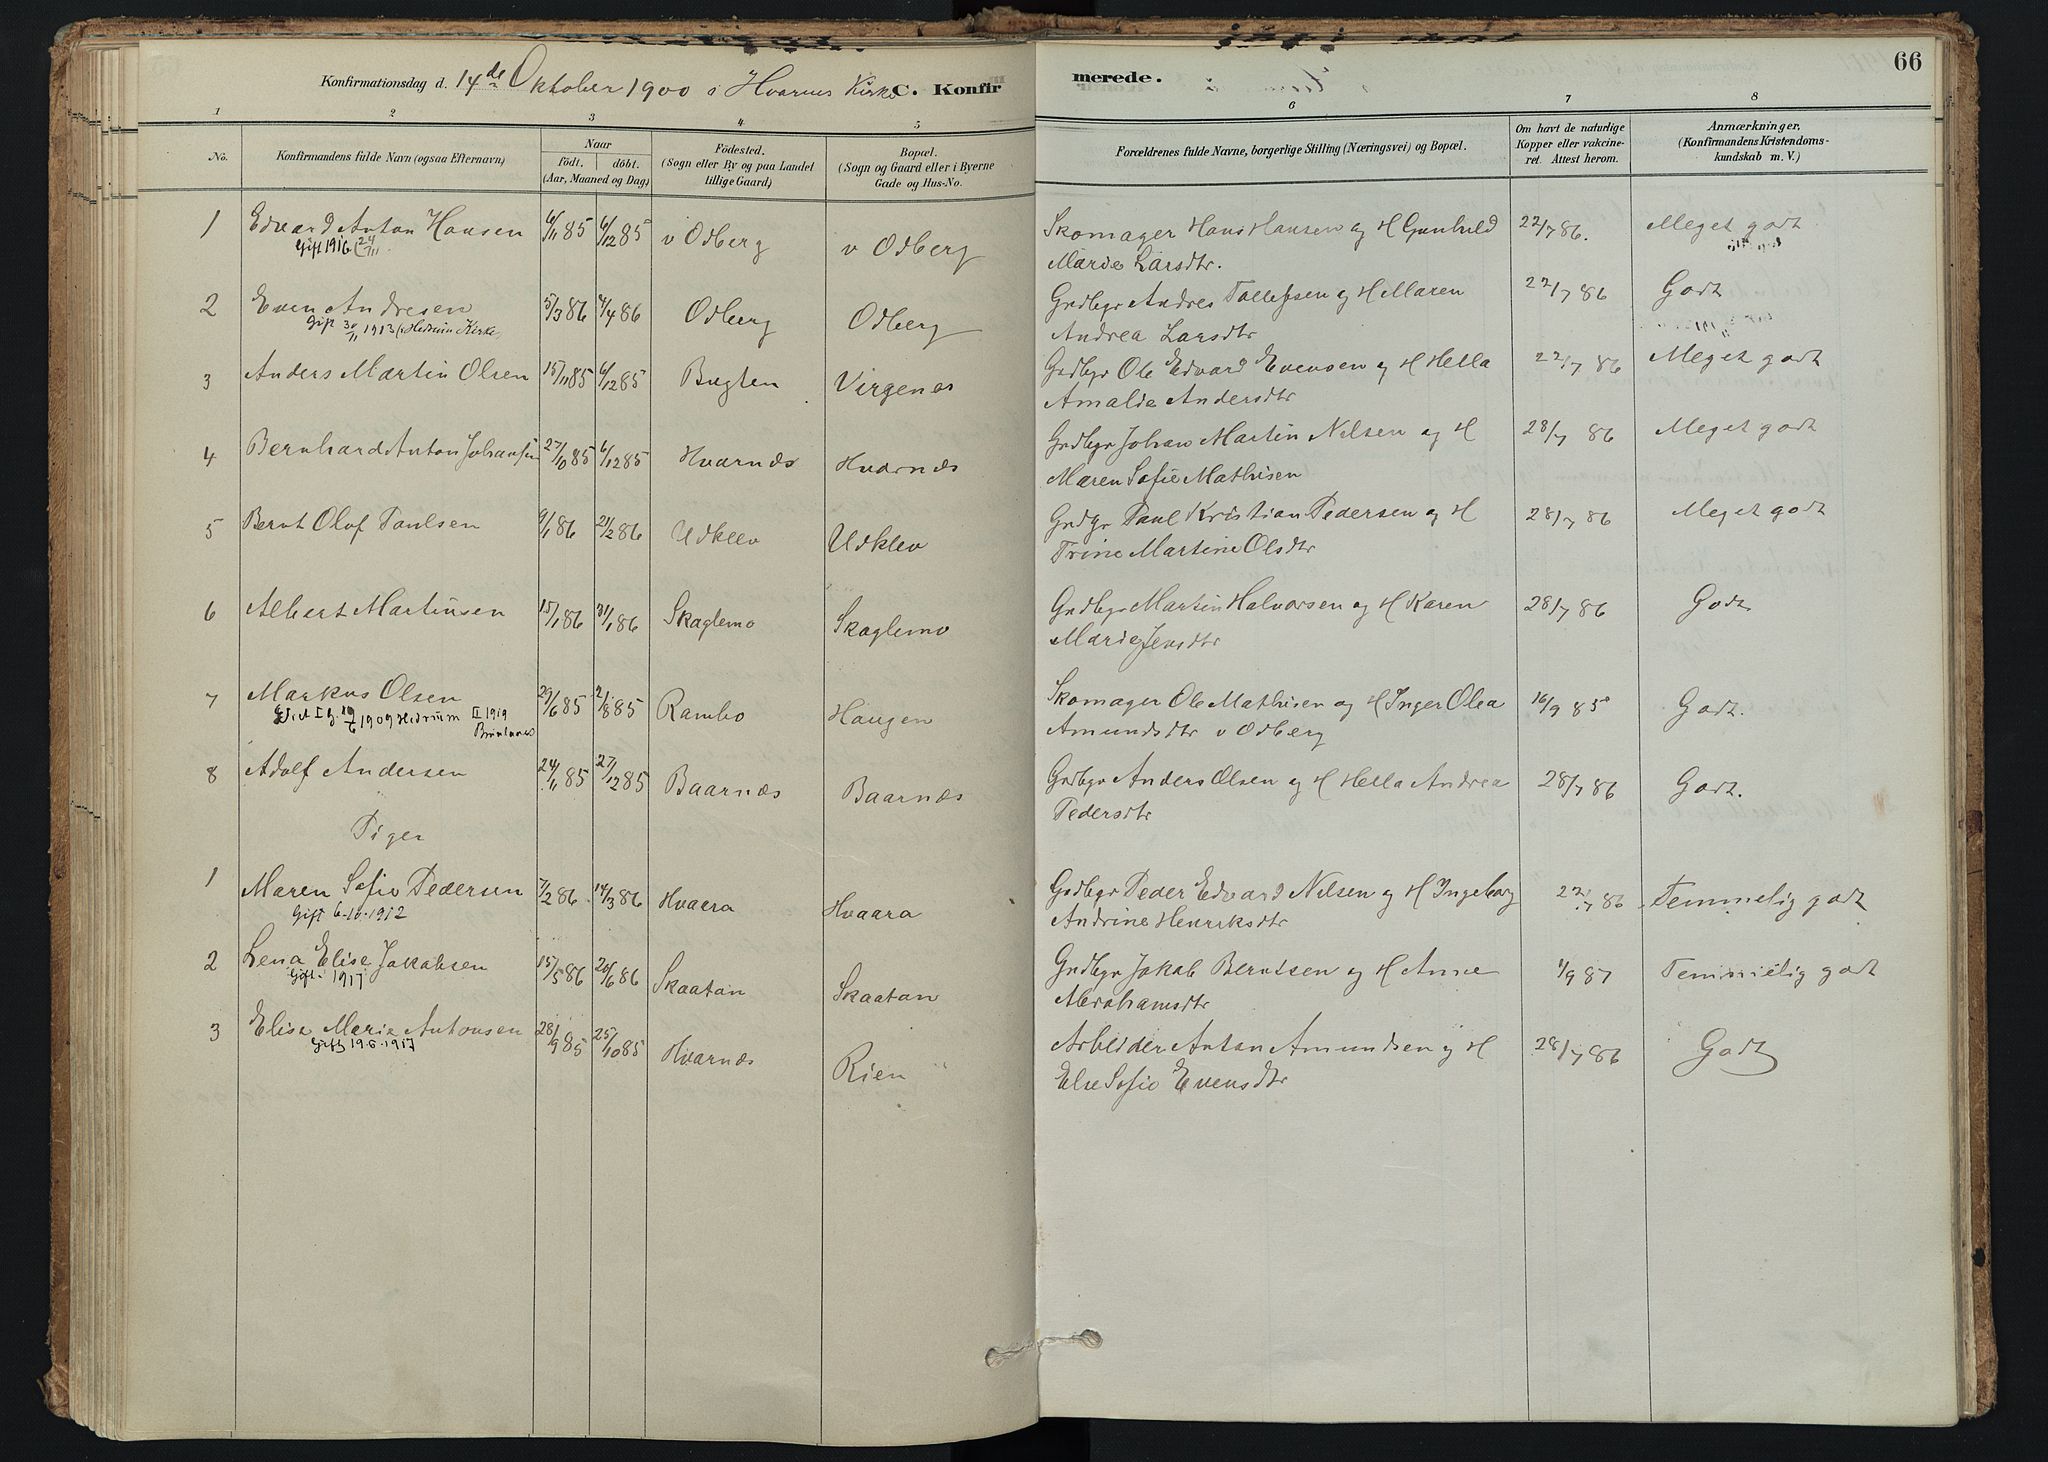 66
Konfirmationsdag d. 14de Oktober 1900 i Hvarnes Kirke C. Konfirmerede.
1 2 3 4 5 6 7 8
No. Konfirmandens fulde Navn (ogsaa Efternavn) Naar födt. döbt. (Aar, Maaned og Dag) Födested. (Sogn eller By og paa Landet tillige Gaard) Bopæl. (Sogn og Gaard eller i Byerne Gade og Hus-No. Forældrenes fulde Navne, borgerlige Stilling (Næringsvei) og Bopæl. Om havt de naturlige Kopper eller vakcineret. Attest herom. Anmærkninger. (Konfirmandens Kristendomskundskab m. V.)
1 Edvard Anton Hansen 6/11 85 6/12 85 v Odberg v Odberg Skomager Hans Hansen og H Gunhild 22/7 86. Meget godt
Gift 1916 24/11 Marie Larsdtr.
2 Even Andresen 5/3 86 4/4 86 Odberg Odberg Grdbgr Andres Tollefsen og H Maren 22/7 86 Godt
Gift 30/11 1913 i Hedrum Kirke Andrea Larsdtr
3 Anders Martin Olsen 15/11 85 6/12 85 Bugten Virgenes Grdbgr Ole Edvard Evensen og H Hella 22/7 86 Meget godt
Amalie Andersdtr
4 Bernhard Anton Johansen 27/10 85 6/12 85 Hvarnæs Hvarnæs Grdbgr Johan Martin Nilsen og H 28/7 86 Meget godt
Maren Sofie Mathisen
5 Bernt Olof Paulsen 9/1 86 21/2 86 Udklev Udklev Grdgr Paul Kristian Pedersen og H 28/7 86 Meget godt
Trine Martine Olsdtr
6 Albert Martinsen 15/1 86 31/1 86 Skaglemo Skaglemo Grdbgr Martin Halvorsen og H Karen 28/7 86 Godt
Marie Jensdtr
7 Markus Olsen 29/6 85 2/8 85 Rambo Haugen Skomager Ole Mathisen og H Inger Olea 16/9 85 Godt.
1909 Hedrum II 1919 Amundsdtr v Odberg
8 Adolf Andersen 24/11 85 27/12 85 Baarnæs Baarnæs Grdbgr Anders Olsen og H Hella Andrea 28/7 86 Godt.
Pedersdtr
Piger
1 Maren Sofie Pedersen 7/2 86 14/3 86 Hvaara Hvaara Grdbgr Peder Edvard Nilsen og H Ingeborg 22/7 86 Temmelig godt
Gift 6-10-1912 Andrine Henriksdtr
2 Lena Elise Jakobsen 15/5 86 20/6 86 Skaatan Skaatan Grdbgr Jakob Berntsen og H Anne 1/9 87 Temmelig godt
Gift 1917 Abrahamsdtr
3 Elise Marie Antonsen 28/9 85 25/10 85 Hvarnæs Rien Arbeider Anton Amundsen og H 28/7 86 Godt
Gift 19.6.1917 Else Sofie Evensdtr